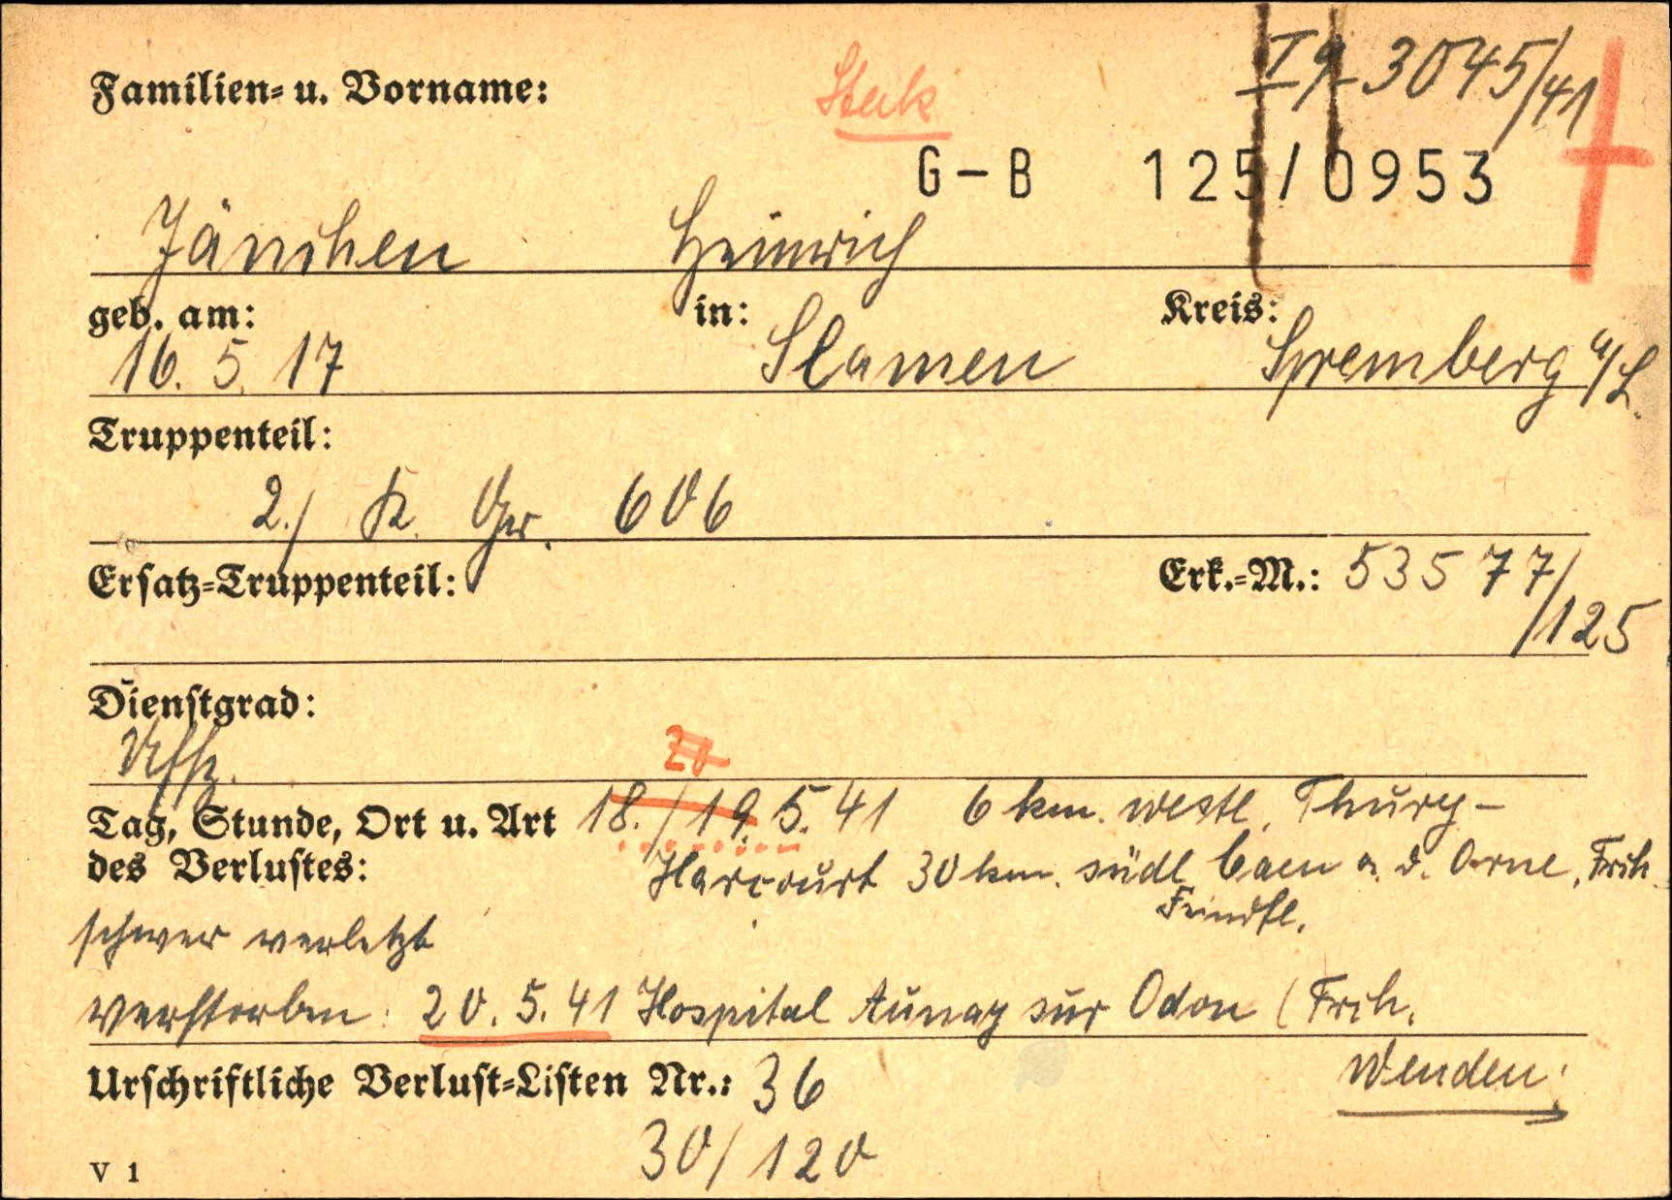 I 9 3045/41
Familien- u. Vorname:
G-B 125/0953
Jänchen Heinrich
geb. am: in: Kreis:
16. 5. 17 Slamen Spremberg a/L.
Truppenteil:
2./ K. Gr. 606
Ersatz-Truppenteil: Erk.-M.: 53577/
/125
Dienstgrad:
Uffz.
20
Tag, Stunde, Ort u. Art 18./19. 5. 41 6 km. westl. Thury-
des Verlustes: Harcourt 30 km. südl Caen a. d. Orne, Frch.
Feindfl.
schwer verletzt
verstorben: 20. 5. 41 Hospital Aunay sur Odon (Frch.
Urschriftliche Verlust-Listen Nr.: 36 Wenden!
30/120
V 1